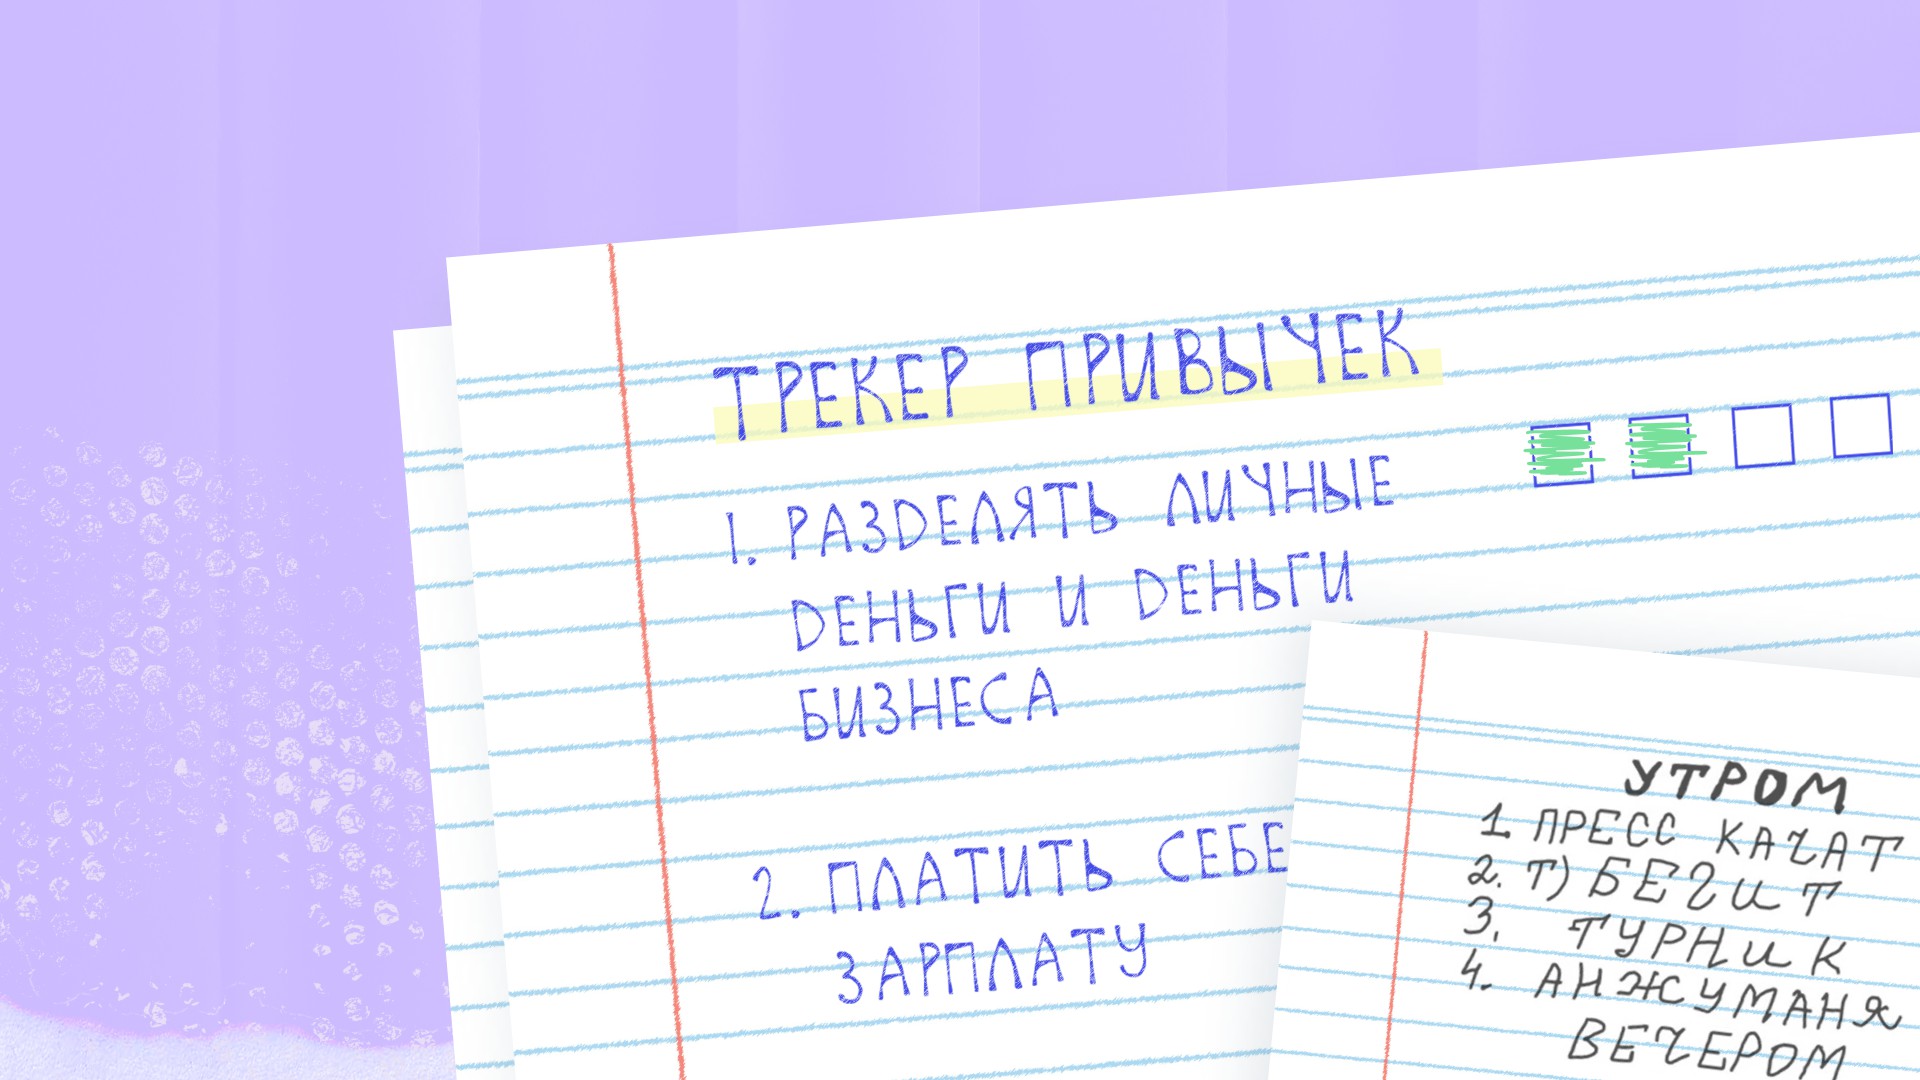 ТРЕКЕР ПРИВЫЧЕК
1. РАЗДЕЛЯТЬ ЛИЧНЫЕ
ДЕНЬГИ И ДЕНЬГИ
БИЗНЕСА
2. ПЛАТИТЬ СЕБЕ
ЗАРПЛАТУ
УТРОМ
1. ПРЕСС КАЧАТ
2. Т) БЕГИТ
3. ТУРНИК
4. АНЖУМАНЯ
ВЕЧЕРОМ